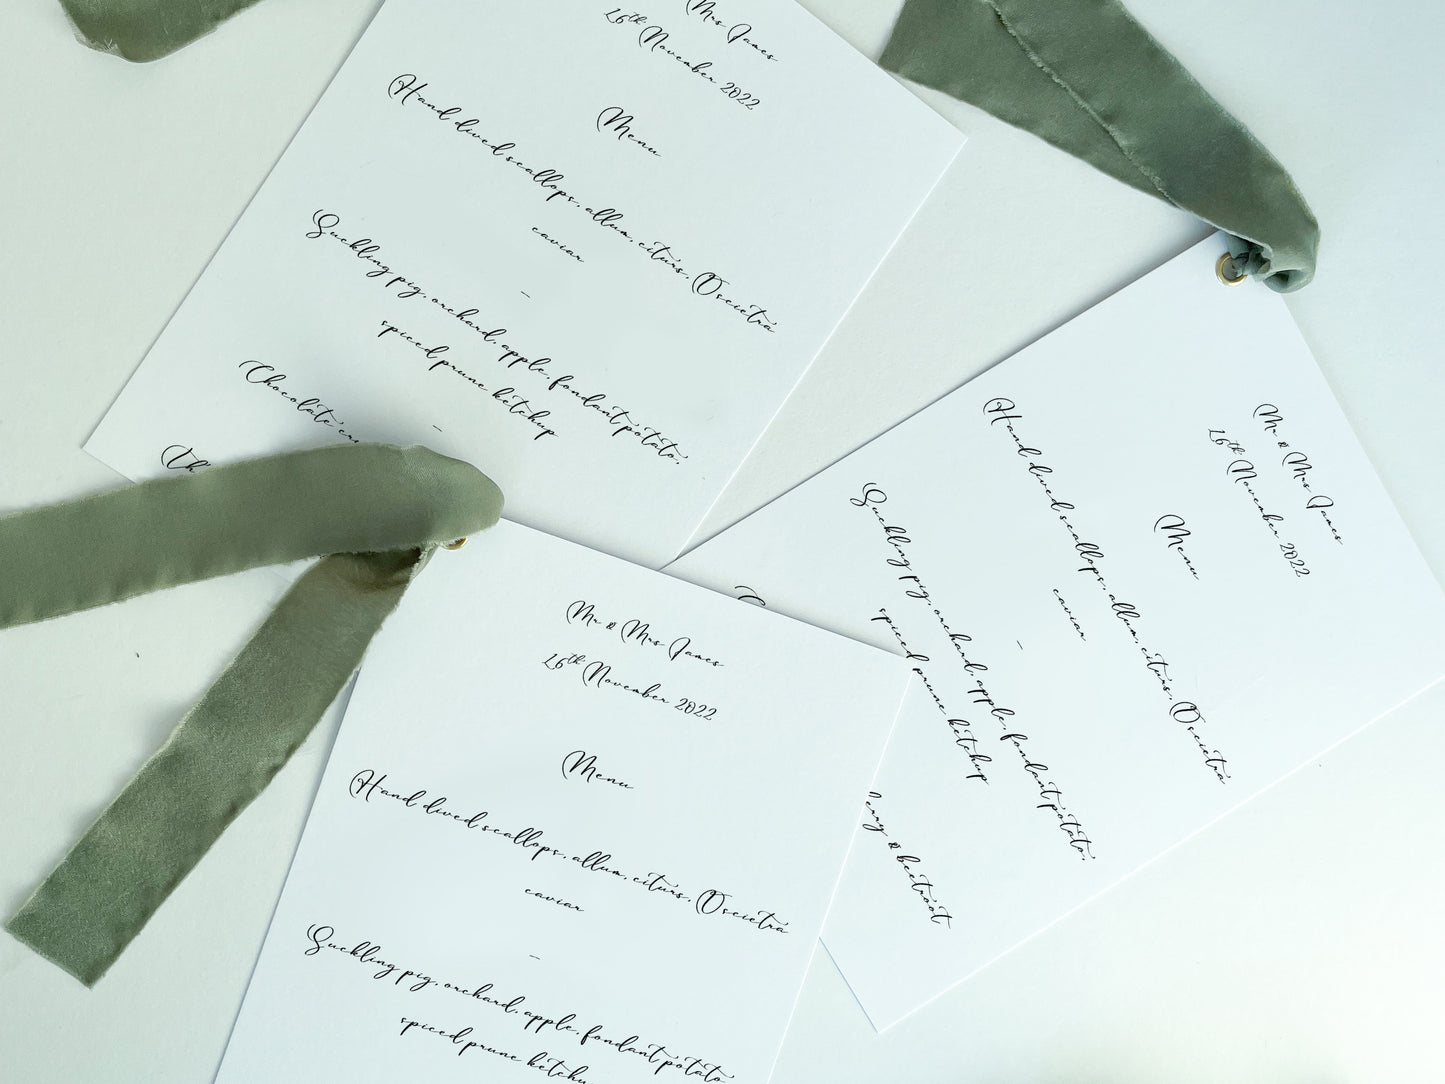 Mrs James
16th November 2022
Menu
Hand dived scallops, allum, citurs, Oscietra
caviar
-
Suckling pig, orchard, apple, fondant potato,
spiced prune ketchup
-
Chocolate
Mr & Mrs James
16th November 2022
Menu
Hand dived scallops, allum, citurs, Oscietra
caviar
-
Suckling pig, orchard, apple, fondant potato,
spiced prune ketchup
& beetroot
Mr & Mrs James
16th November 2022
Menu
Hand dived scallops, allum, citurs, Oscietra
caviar
-
Suckling pig, orchard, apple, fondant potato
spiced prune ketchu